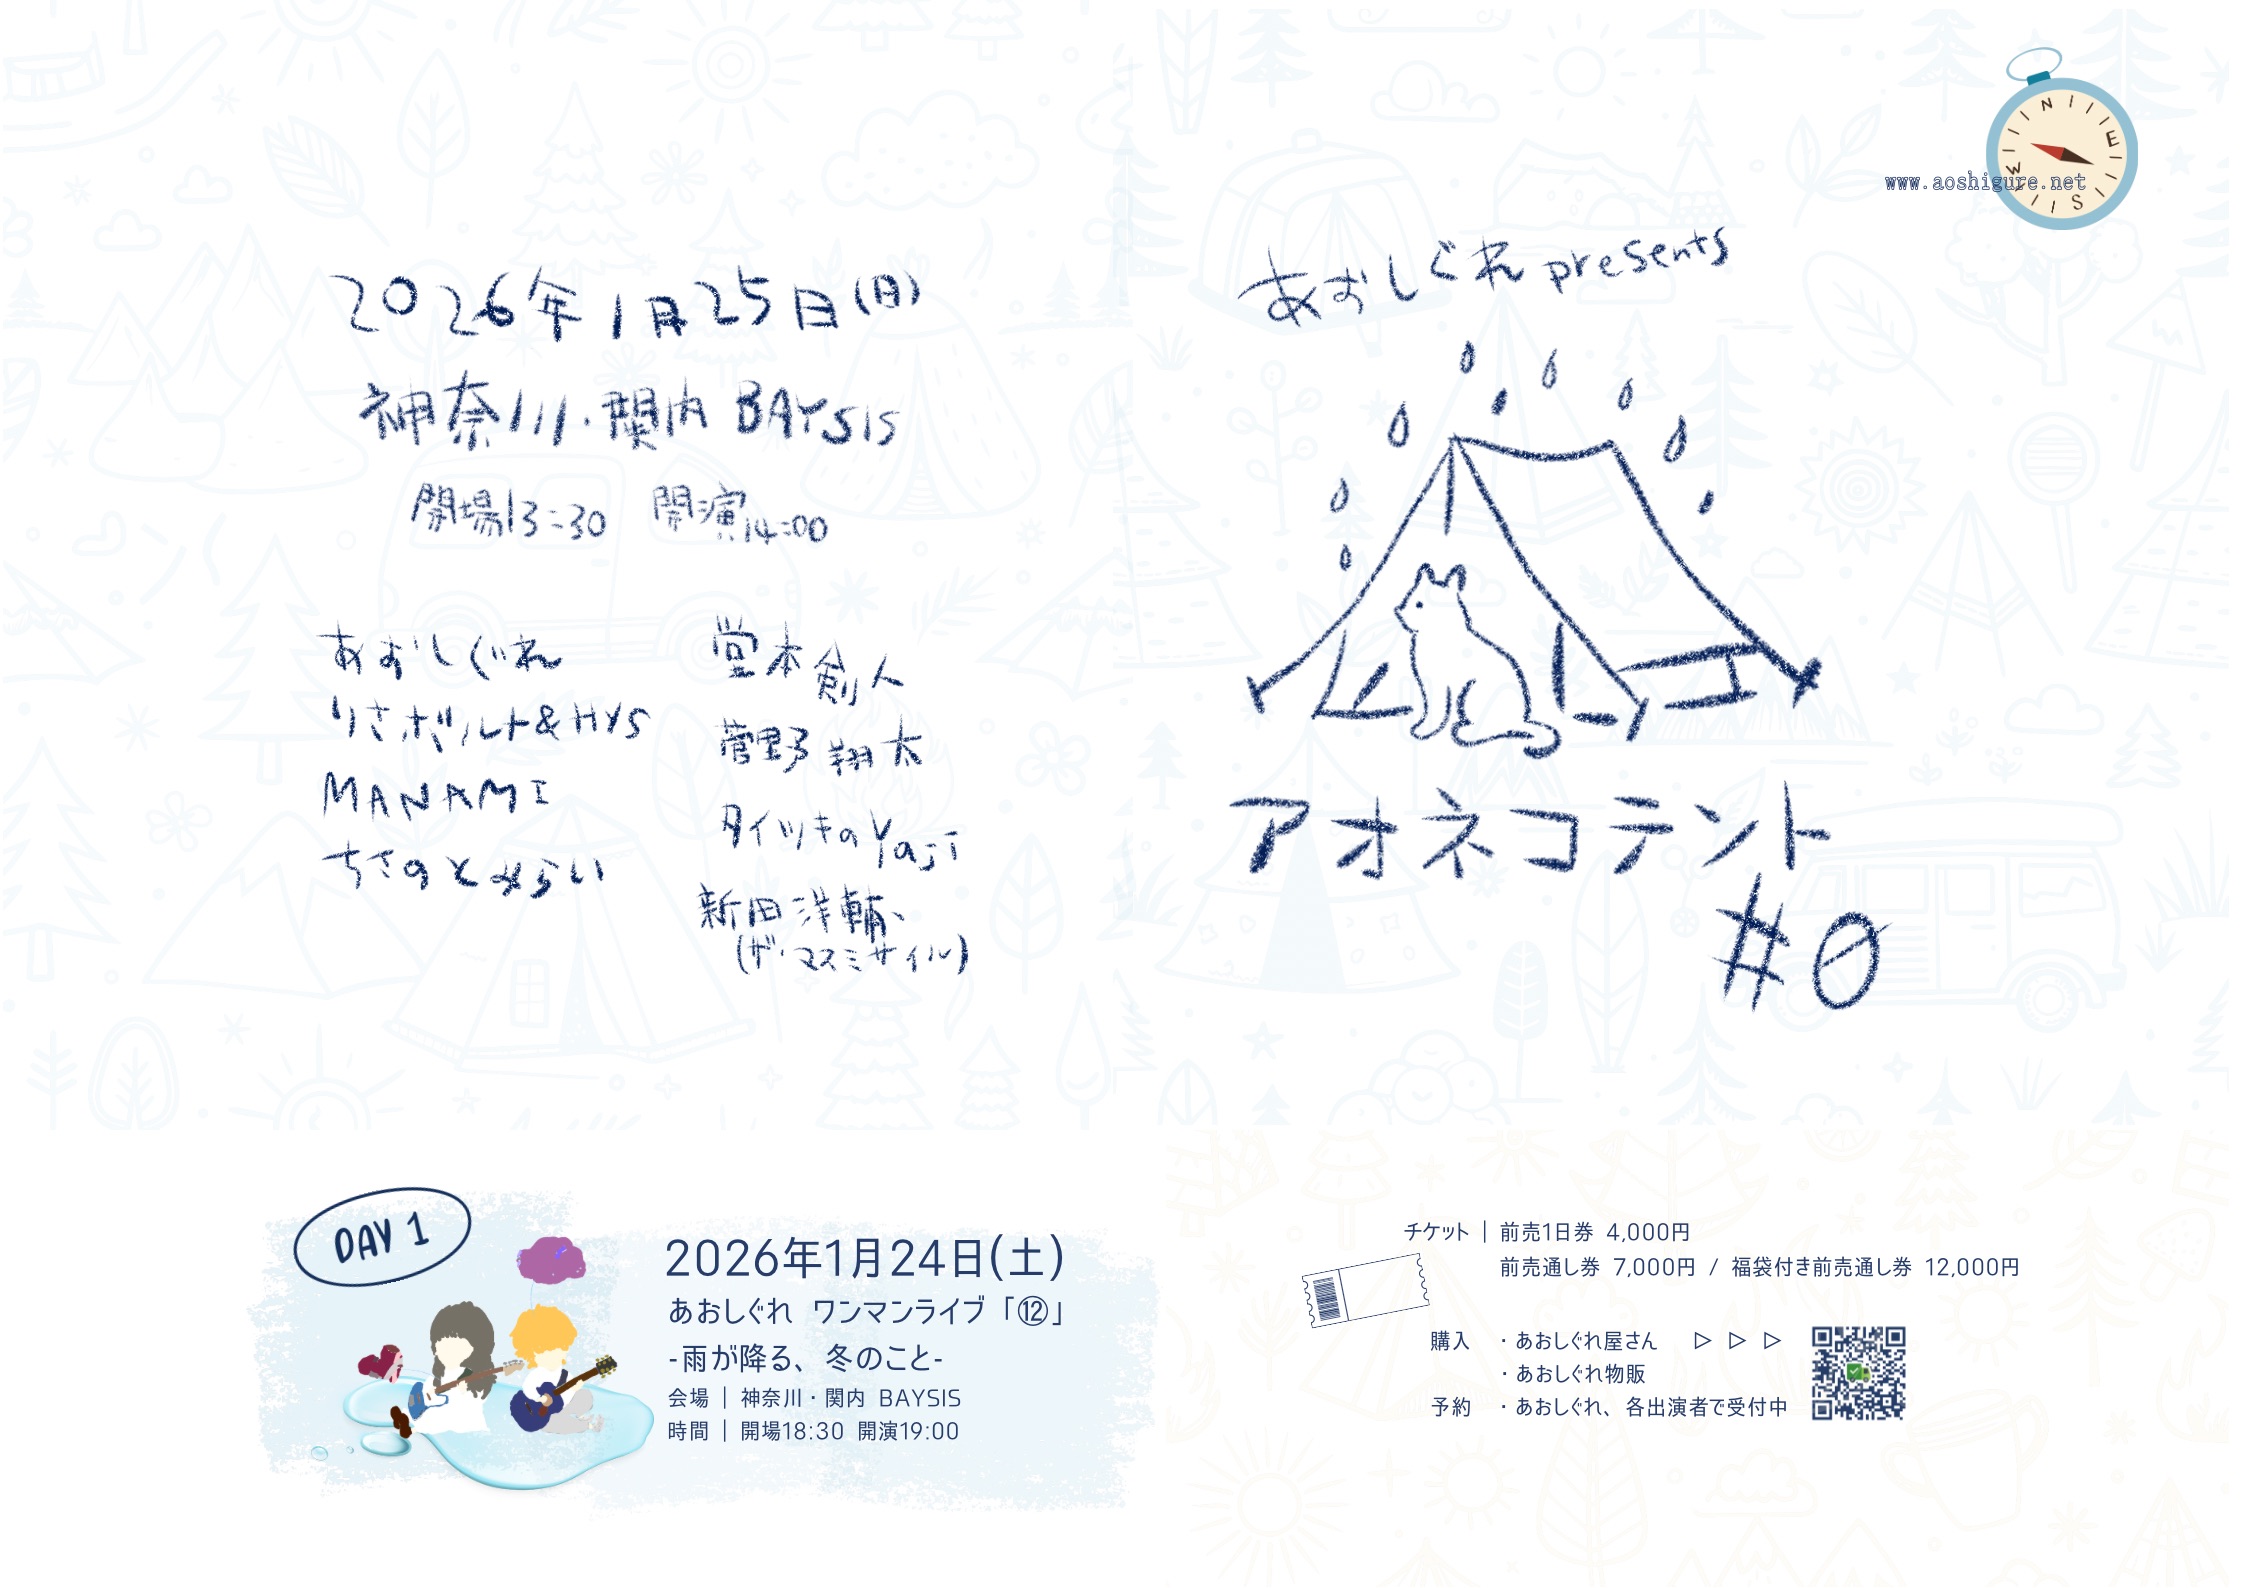 2026年1月25日(日)
神奈川・関内 BAYSIS
開場13:30 開演14:00
あおしぐれ
りさボルト&HYS
MANAMI
ちさのとみらい
堂本剣人
菅野翔太
タイツキのYaji
新田洋輔
(ザ・マスミサイル)
N
E
W
S
www.aoshigure.net
あおしぐれ presents
アオネコテント
#0
DAY 1
2026年1月24日(土)
あおしぐれ ワンマンライブ「⑫」
-雨が降る、冬のこと-
会場 | 神奈川・関内 BAYSIS
時間 | 開場18:30 開演19:00
チケット | 前売1日券 4,000円
前売通し券 7,000円 / 福袋付き前売通し券 12,000円
購入 ・あおしぐれ屋さん ▷ ▷ ▷
・あおしぐれ物販
予約 ・あおしぐれ、各出演者で受付中